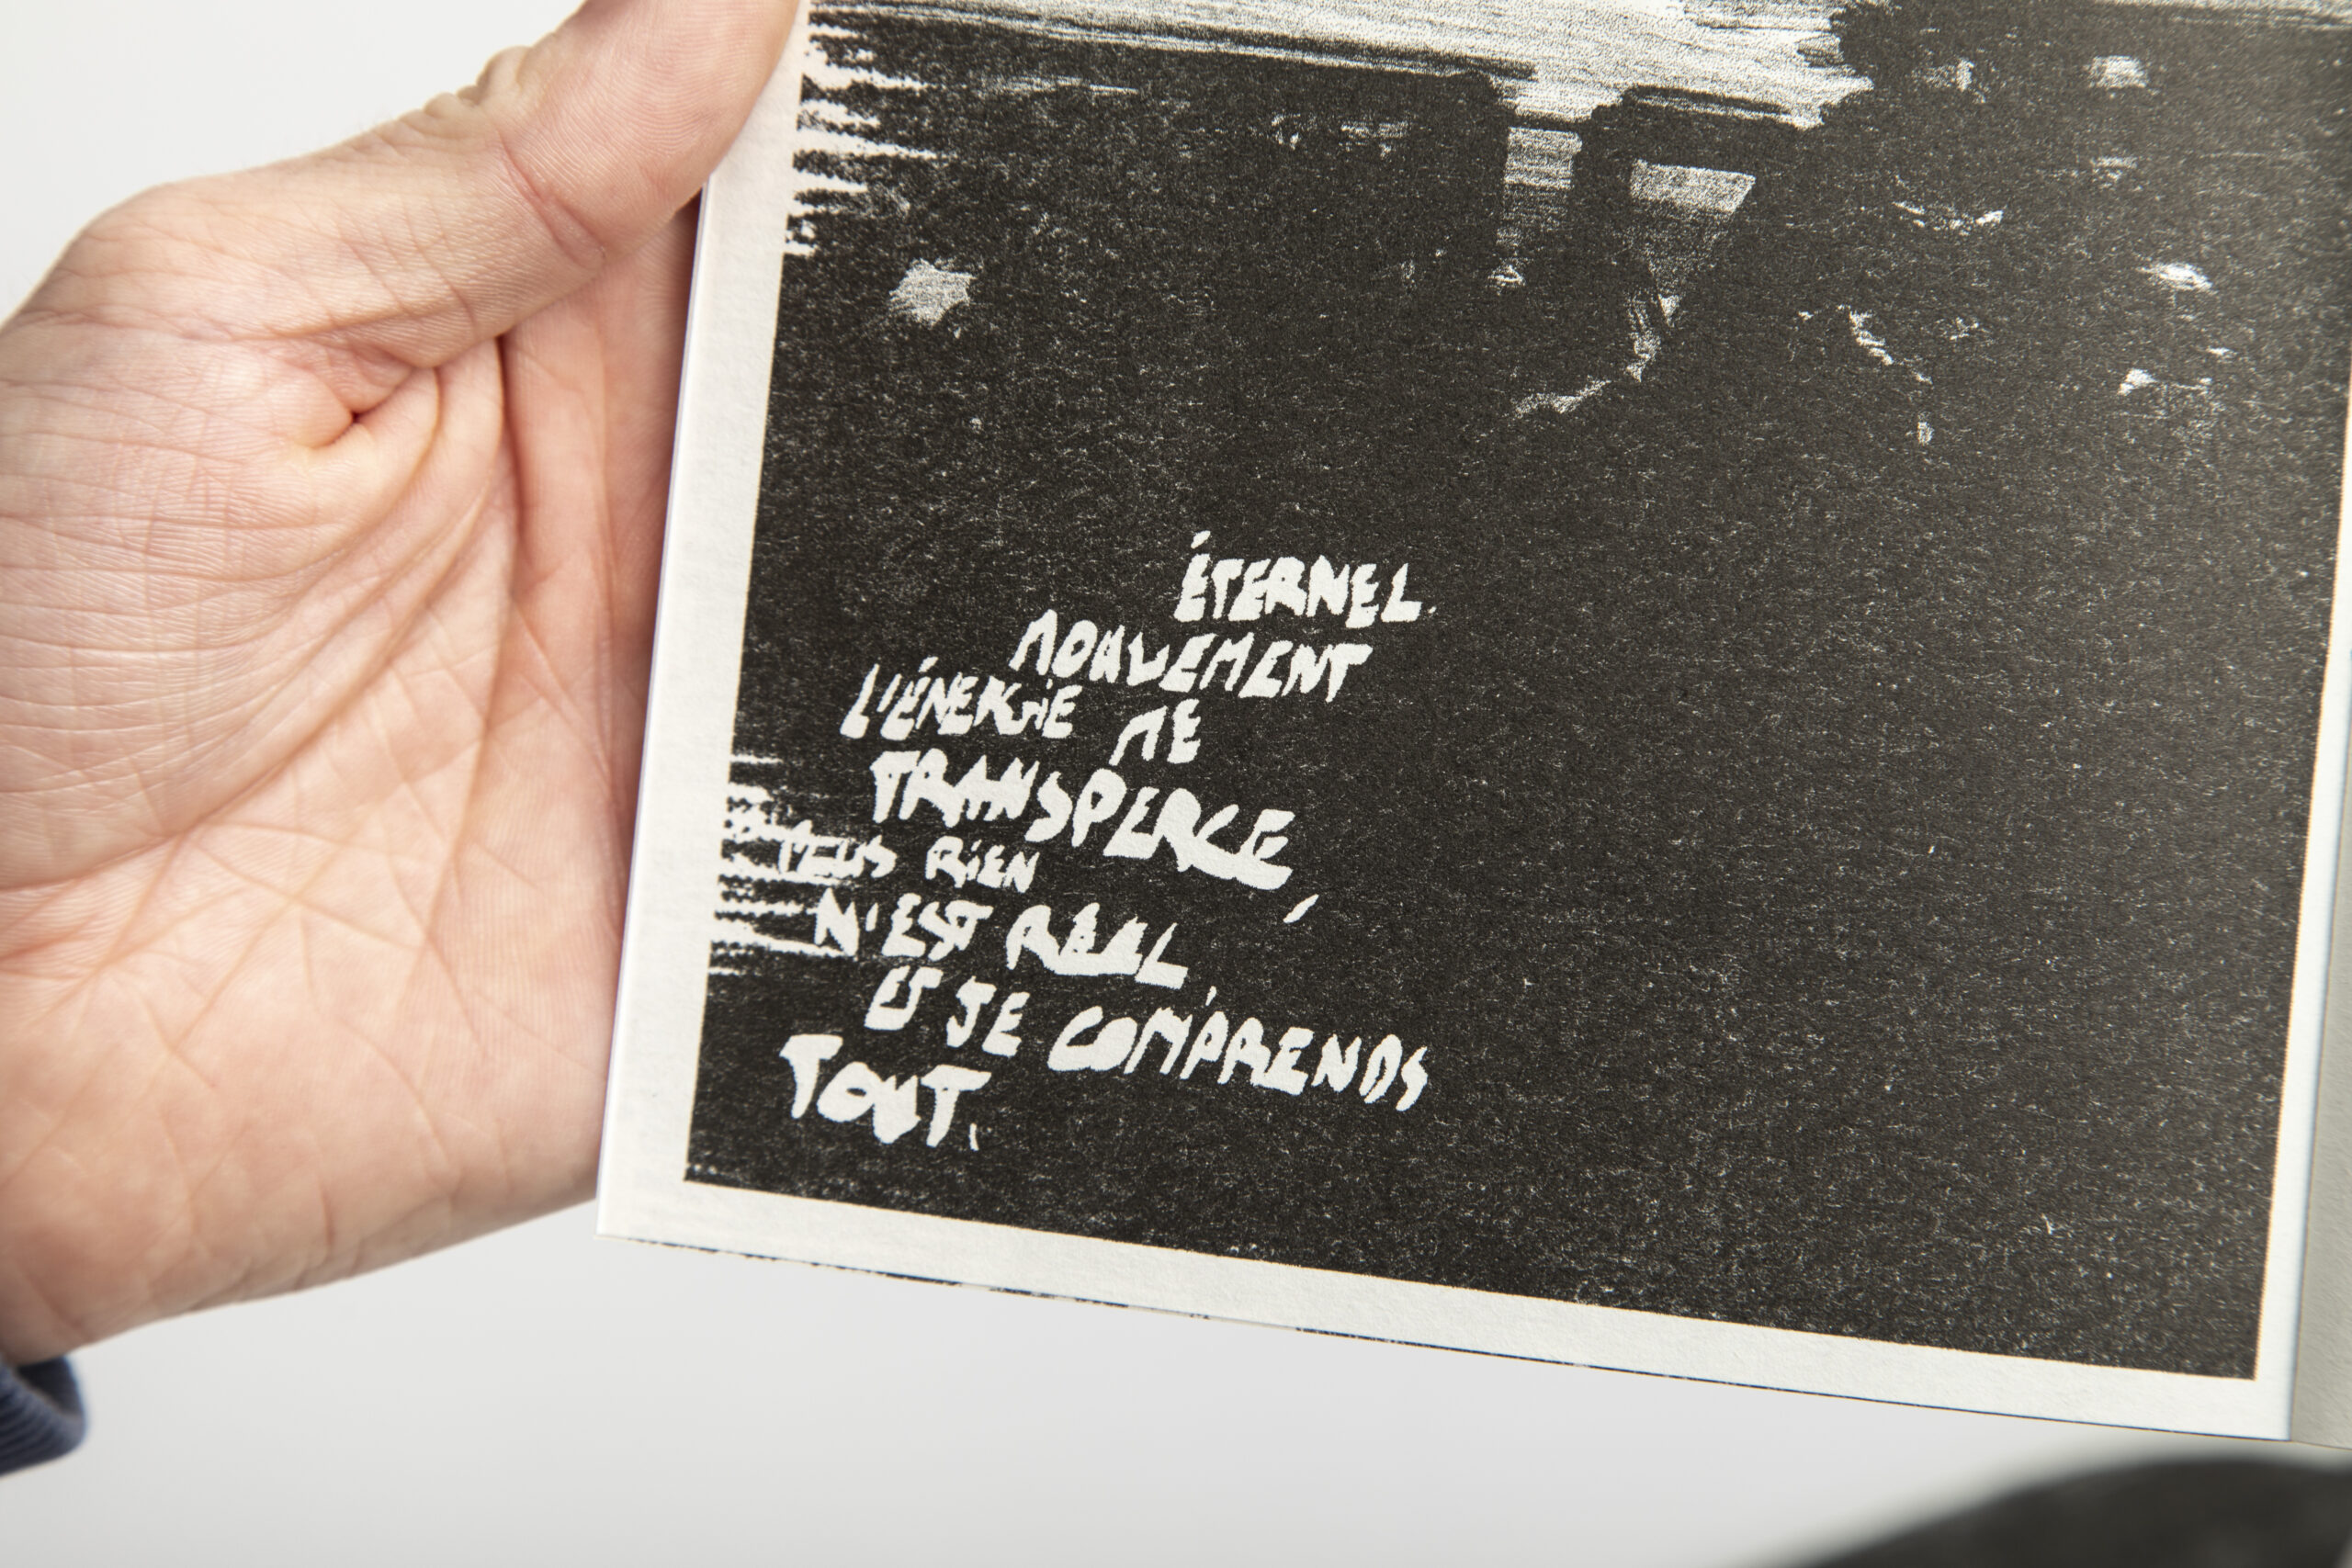 ÉTERNEL.
MOUVEMENT
L'ÉNERGIE ME
TRANSPERCE,
PLUS RIEN
N'EST RÉEL,
ET JE COMPRENDS
TOUT.